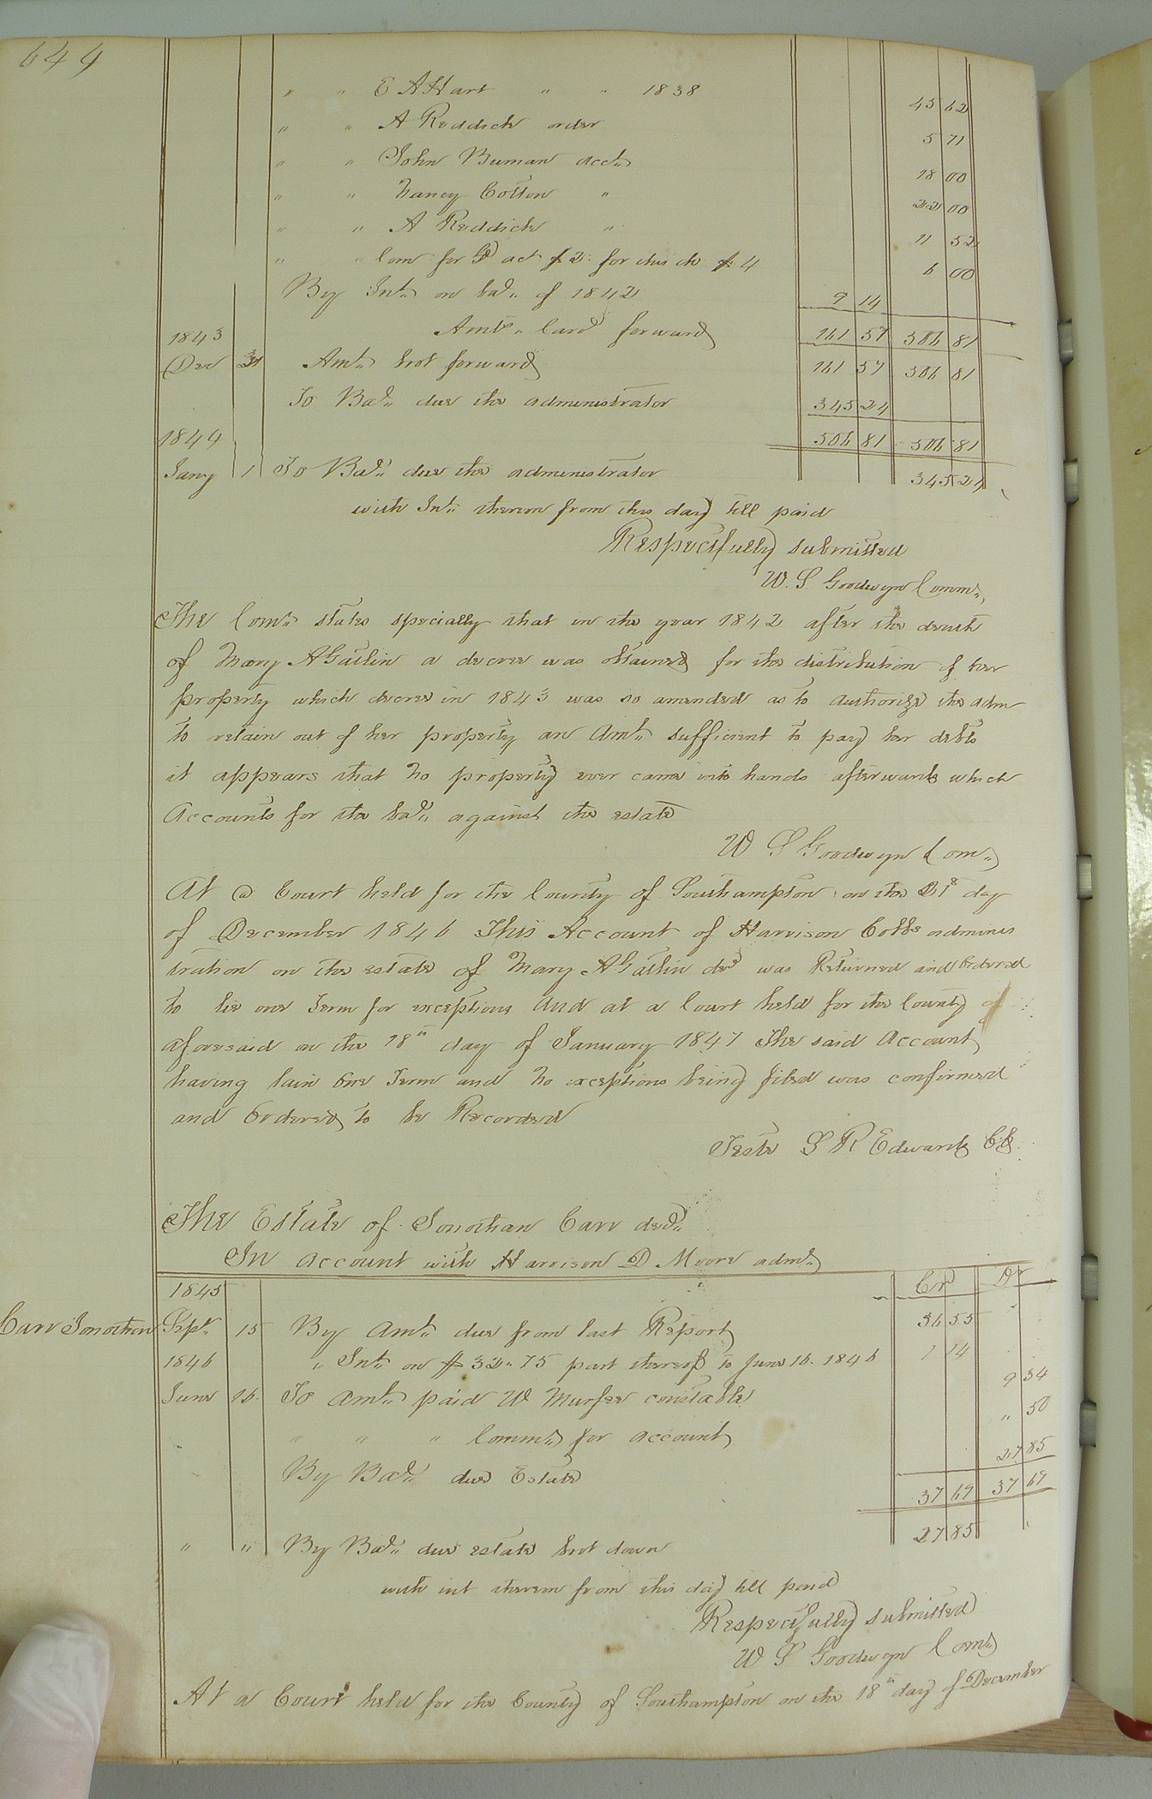 644
" " E A Hart " " 1838 45 62
" " A Reddick order 5 71
" " John Buman acct. 18 00
" " Nancy Cotton " 22 00
" " A Reddick " 11 52
" " Com for act $2. for this do $4 6 00
By Int. on bal. of 1842 9 14
Amts. card forward 161 57 506 81
1843
Dec 31 Amt. brot forward 161 57 506 81
To Bal. due the administrator 345 24
506 81 506 81
1844
Jany 1 To Bal. due the administrator 345 24
with Int. thereon from this day till paid
Respectfully submitted
W. S Goodwyn Comm.
The Com. states specially that in the year 1842 after the death
of Mary A Gatlin a decree was obtained for the distribution of her
property which decree in 1843 was so amended as to authorize the adm
to retain out of her property an Amt. sufficient to pay her debts
it appears that no property ever came into hands afterwards which
Accounts for the bal. against the estate
W S Goodwyn Com.
At a Court held for the County of Southampton on the 21st day
of December 1846 This Account of Harrison Cobbs adminis
tration on the estate of Mary A Gatlin decd was Returned and Ordered
to lie one Term for exceptions And at a Court held for the County of
aforesaid on the 18th day of January 1847 The said Account
having lain one Term and no exceptions being filed was confirmed
and Ordered to be Recorded
Teste L R Edwards Clk
The Estate of Jonathan Carr decd.
In account with Harrison D Moore admr.
1845 Cr Dr
Carr Jonathan Sept. 15 By Amt. due from last Report 36 55
1846 " Int. on $32.75 part thereof to June 16. 1846 1 14
June 16 To Amt. paid W Murfee constable 9 34
" " " Comm. for account " 50
By Bal. due Estate 27 85
37 69 37 69
" " By Bal. due estate brot down 27 85
with int thereon from this day till paid
Respectfully submitted
W S Goodwyn Com.
At a Court held for the County of Southampton on the 18th day of December